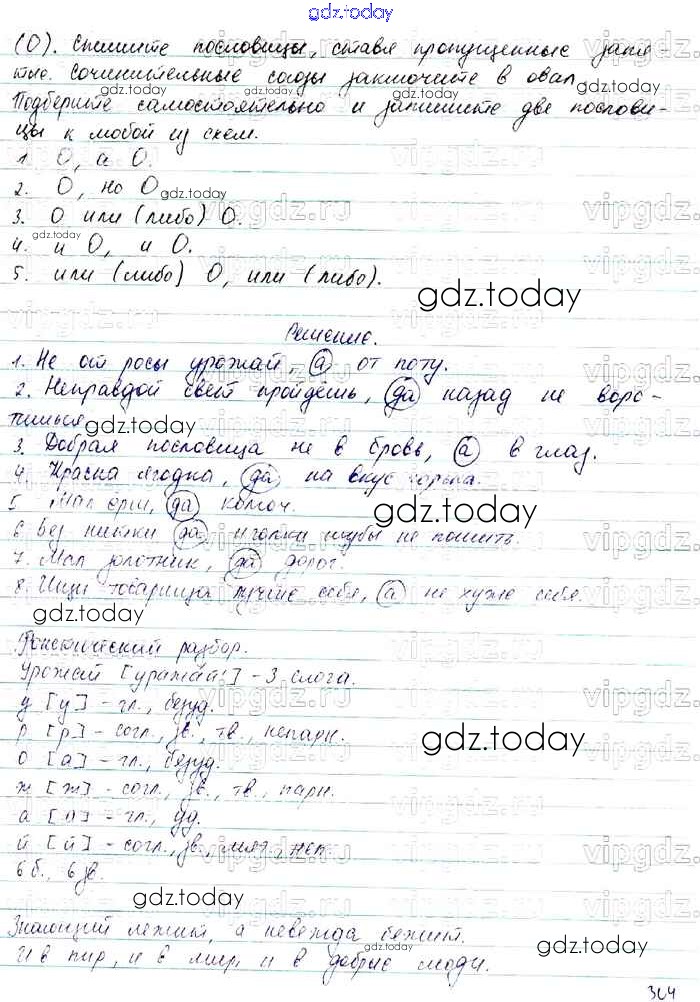 gdz.today
(О). Спишите пословицы, ставя пропущенные запя-
тые. Сочинительные союзы заключите в овал.
gdz.today gdz.today gdz.today
Подберите самостоятельно и запишите две послови-
цы к любой из схем.
1. О, а О.
2. О, но О gdz.today
3. О или (либо) О.
gdz.today
4. и О, и О.
5. или (либо) О, или (либо).
gdz.today
Решение.
1. Не от росы урожай, а от поту.
2. Неправдой свет пройдёшь, да назад не воро-
тишься
3. Добрая пословица не в бровь, а в глаз.
4. Красна ягодка, да на вкус горька.
5. Мал ёрш, да колюч.
gdz.today
6. Без нитки да иголки шубы не пошить.
7. Мал золотник, да дорог.
8. Ищи товарища лучше себя, а не хуже себя.
gdz.today
Фонетический разбор.
Урожай [уражай'] - 3 слога.
у [у] - гл., безуд.
р [р] - согл., зв., тв., непарн.
gdz.today
о [а] - гл., безуд.
ж [ж] - согл., зв., тв., парн.
а [а] - гл., уд.
й [й] - согл., зв., мягк., неп.
6 б., 6 зв.
gdz.today
Знающий лежит, а невежда бежит.
gdz.today gdz.today
И в пир, и в мир, и в добрые люди.
304
vipgdz.ru